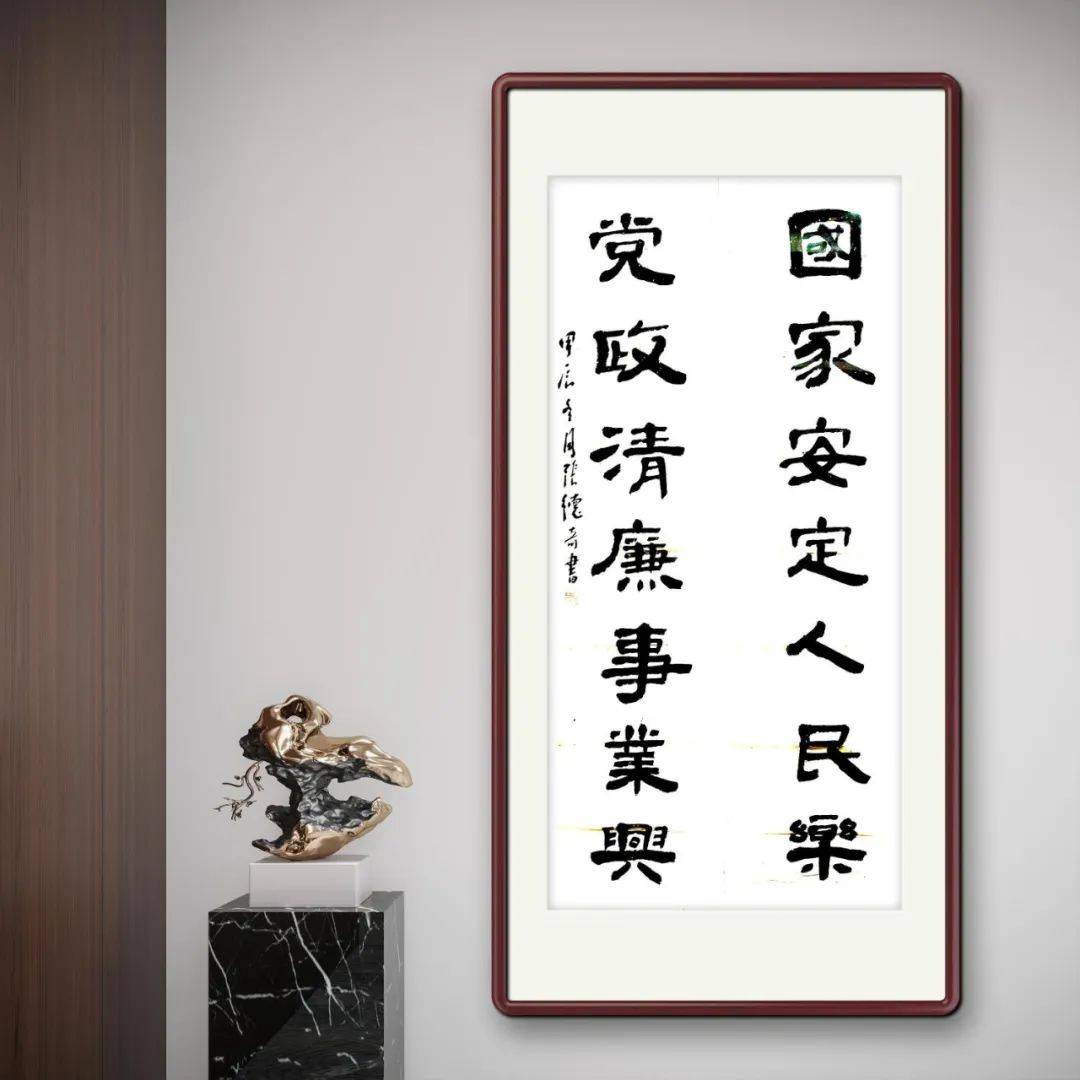 國家安定人民樂
党政清廉事業興
甲辰冬月張德奇書